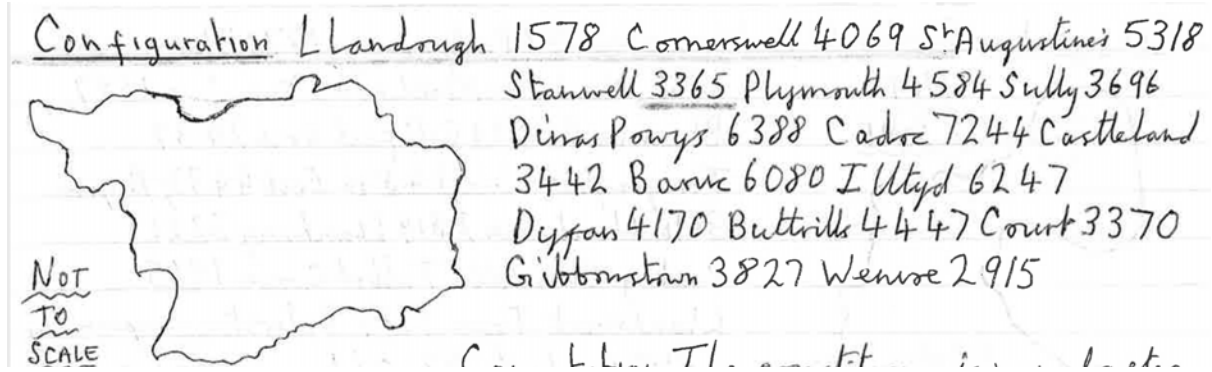 Configuration Llandough 1578 Cornerswell 4069 St Augustine's 5318
Stanwell 3365 Plymouth 4584 Sully 3696
Dinas Powys 6388 Cadoc 7244 Castleland
3442 Baruc 6080 Illtyd 6247
Dyfan 4170 Buttrills 4447 Court 3370
Gibbonstown 3827 Wenvoe 2915
NOT
TO
SCALE